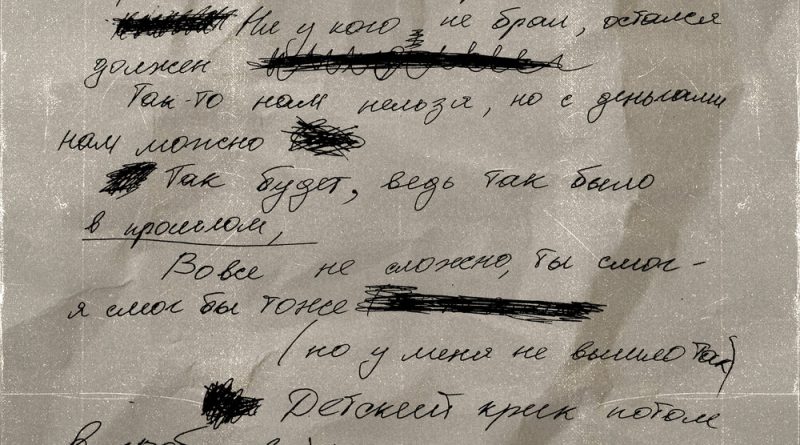 Ни у кого не брал, остался
должен
Так-то нам нельзя, но с деньгами
нам можно
Так будет, ведь так было
в прошлом,
Вовсе не сложно, ты смог -
я смог бы тоже
(но у меня не вышло так)
Детский крик потом